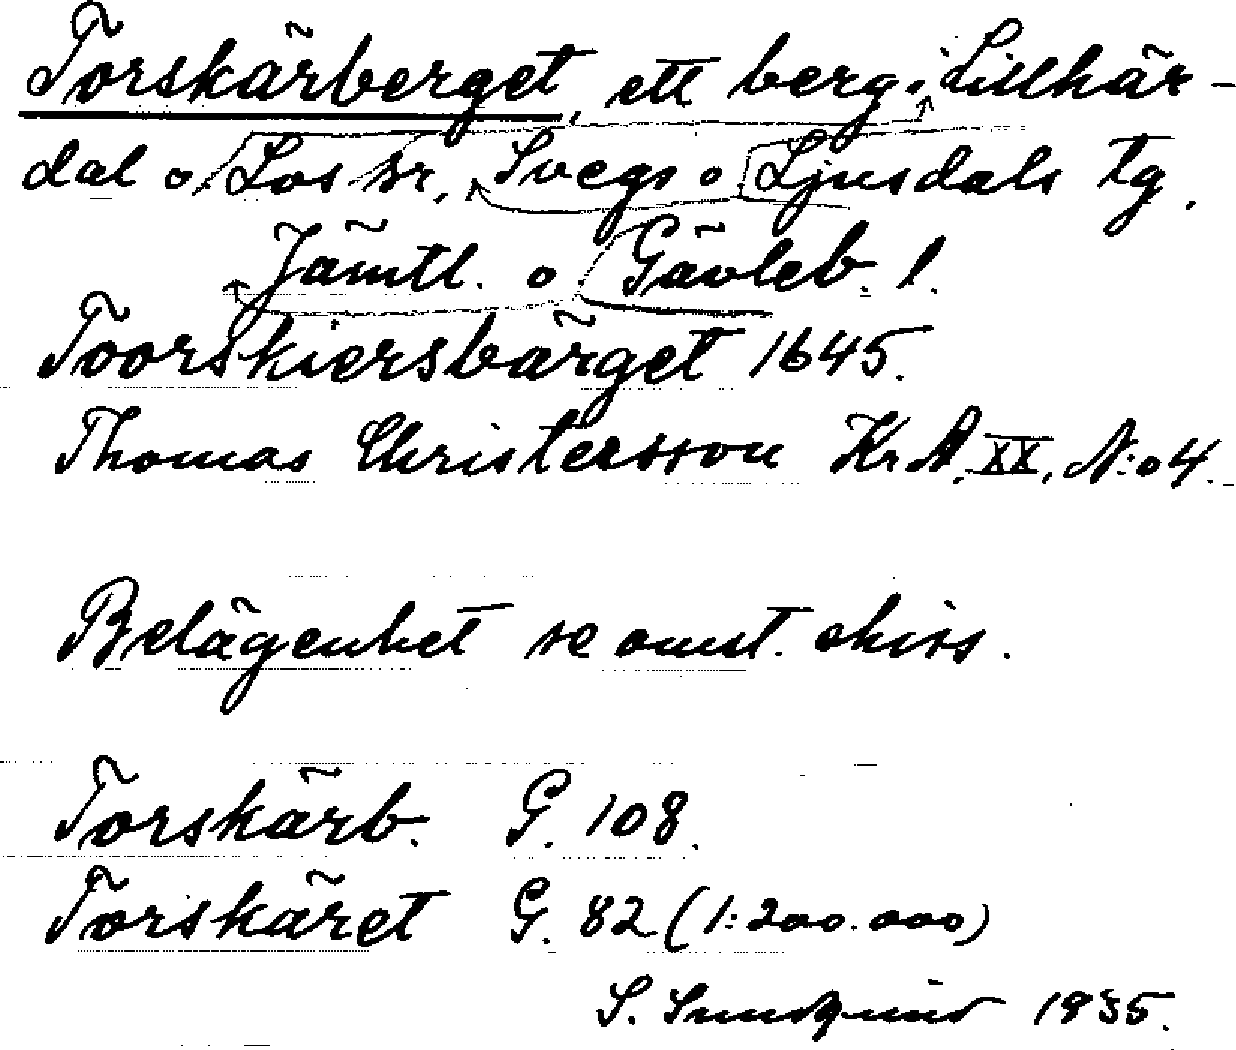 Torskärberget, ett berg i Lillhär-
dal o Los sr, Svegs o Ljusdals tg.
Jämtl. o Gävleb. l.
Toorskiersbärget 1645.
Thomas Christersson Kr A, XX, N:o 4.
Belägenhet se omst. skiss.
Torskärb. G. 108.
Torskäret G. 82 (1:200.000)
S. Sundquist 1935.